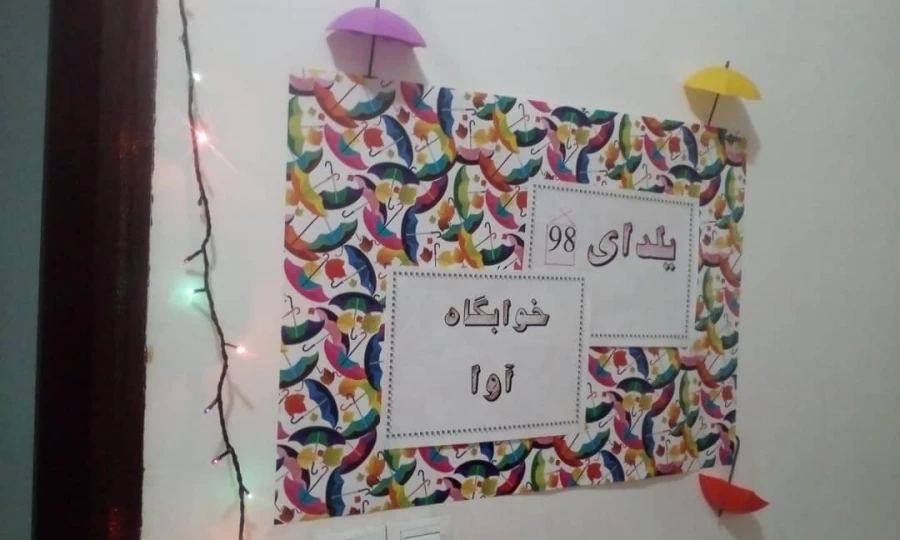 یلدای 98
خوابگاه
آوا